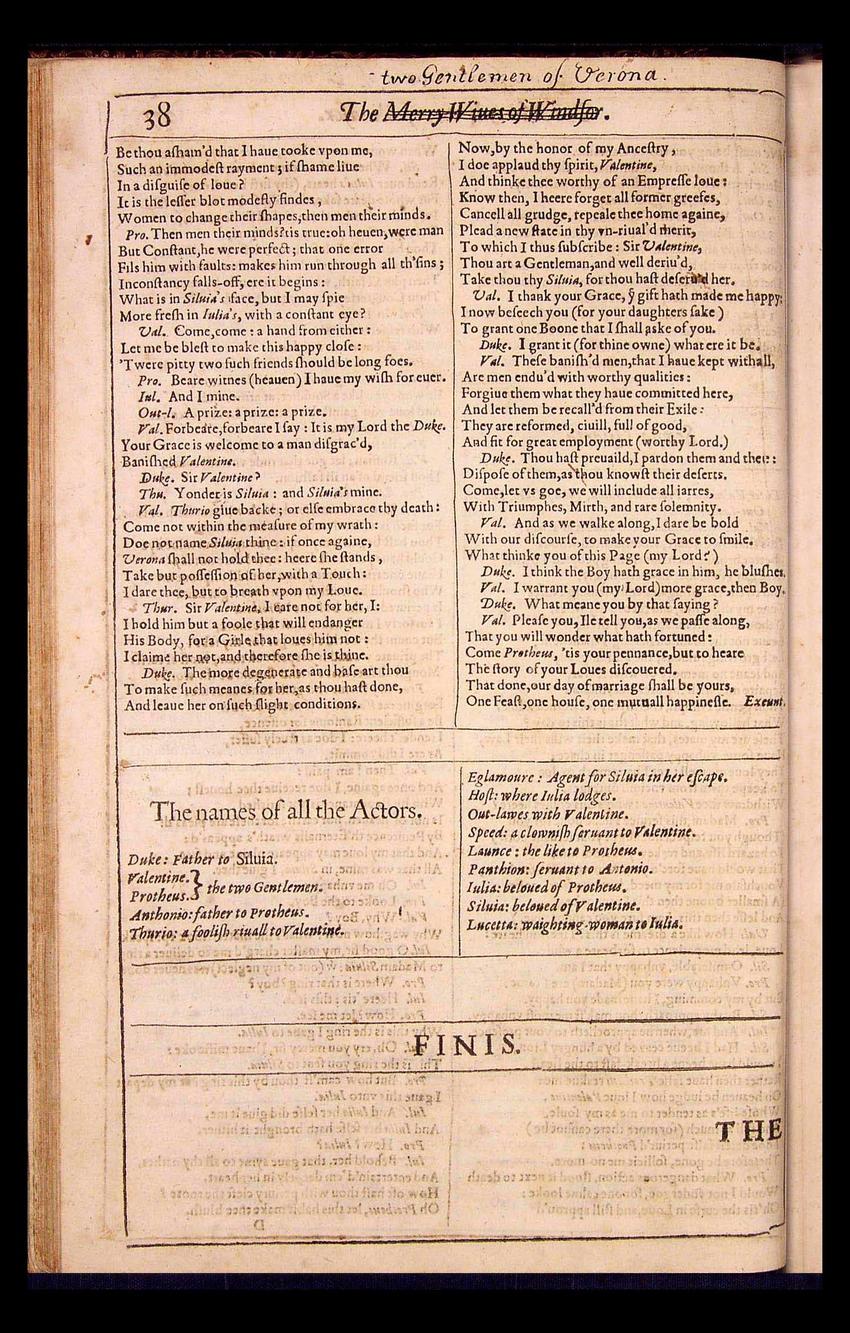 two Gentlemen of Verona.
38
The Merry Wiues of Windſor.
Be thou aſham'd that I haue tooke vpon me,
Such an immodeſt rayment; if ſhame liue
In a diſguiſe of loue?
It is the leſſer blot modeſty findes,
Women to change their ſhapes, then men their minds.
Pro. Then men their minds? tis true: oh heuen, were man
But Conſtant, he were perfect; that one error
Fils him with faults: makes him run through all th'ſins;
Inconſtancy falls-off, ere it begins:
What is in Siluia's face, but I may ſpie
More freſh in Iulia's, with a conſtant eye?
Val. Come, come: a hand from either:
Let me be bleſt to make this happy cloſe:
'Twere pitty two ſuch friends ſhould be long foes.
Pro. Beare witnes (heauen) I haue my wiſh for euer.
Iul. And I mine.
Out-l. A prize: a prize: a prize.
Val. Forbeare, forbeare I ſay: It is my Lord the Duke.
Your Grace is welcome to a man diſgrac'd,
Baniſhed Valentine.
Duke. Sir Valentine?
Thu. Yonder is Siluia: and Siluia's mine.
Val. Thurio giue backe; or elſe embrace thy death:
Come not within the meaſure of my wrath:
Doe not name Siluia thine: if once againe,
Verona ſhall not hold thee: heere ſhe ſtands,
Take but poſſeſſion of her, with a Touch:
I dare thee, but to breath vpon my Loue.
Thur. Sir Valentine, I care not for her, I:
I hold him but a foole that will endanger
His Body, for a Girle that loues him not:
I claime her not, and therefore ſhe is thine.
Duke. The more degenerate and baſe art thou
To make ſuch meanes for her, as thou haſt done,
And leaue her on ſuch ſlight conditions.
Now, by the honor of my Anceſtry,
I doe applaud thy ſpirit, Valentine,
And thinke thee worthy of an Empreſſe loue:
Know then, I heere forget all former greefes,
Cancell all grudge, repeale thee home againe,
Plead a new ſtate in thy vn-riual'd merit,
To which I thus ſubſcribe: Sir Valentine,
Thou art a Gentleman, and well deriu'd,
Take thou thy Siluia, for thou haſt deſeru'd her.
Val. I thank your Grace, ẙ gift hath made me happy:
I now beſeech you (for your daughters ſake)
To grant one Boone that I ſhall aske of you.
Duke. I grant it (for thine owne) what ere it be.
Val. Theſe baniſh'd men, that I haue kept withall,
Are men endu'd with worthy qualities:
Forgiue them what they haue committed here,
And let them be recall'd from their Exile:
They are reformed, ciuill, full of good,
And fit for great employment (worthy Lord.)
Duke. Thou haſt preuaild, I pardon them and thee:
Diſpoſe of them, as thou knowſt their deſerts.
Come, let vs goe, we will include all iarres,
With Triumphes, Mirth, and rare ſolemnity.
Val. And as we walke along, I dare be bold
With our diſcourſe, to make your Grace to ſmile.
What thinke you of this Page (my Lord?)
Duke. I think the Boy hath grace in him, he bluſhes.
Val. I warrant you (my Lord) more grace, then Boy.
Duke. What meane you by that ſaying?
Val. Pleaſe you, Ile tell you, as we paſſe along,
That you will wonder what hath fortuned:
Come Protheus, 'tis your pennance, but to heare
The ſtory of your Loues diſcouered.
That done, our day of marriage ſhall be yours,
One Feaſt, one houſe, one mutuall happineſſe. Exeunt.
The names of all the Actors.
Duke: Father to Siluia.
Valentine.
Protheus. } the two Gentlemen.
Anthonio: father to Protheus.
Thurio: a fooliſh riuall to Valentine.
Eglamoure: Agent for Siluia in her eſcape.
Hoſt: where Iulia lodges.
Out-lawes with Valentine.
Speed: a clowniſh ſeruant to Valentine.
Launce: the like to Protheus.
Panthion: ſeruant to Antonio.
Iulia: beloued of Protheus.
Siluia: beloued of Valentine.
Lucetta: waighting-woman to Iulia.
FINIS.
THE